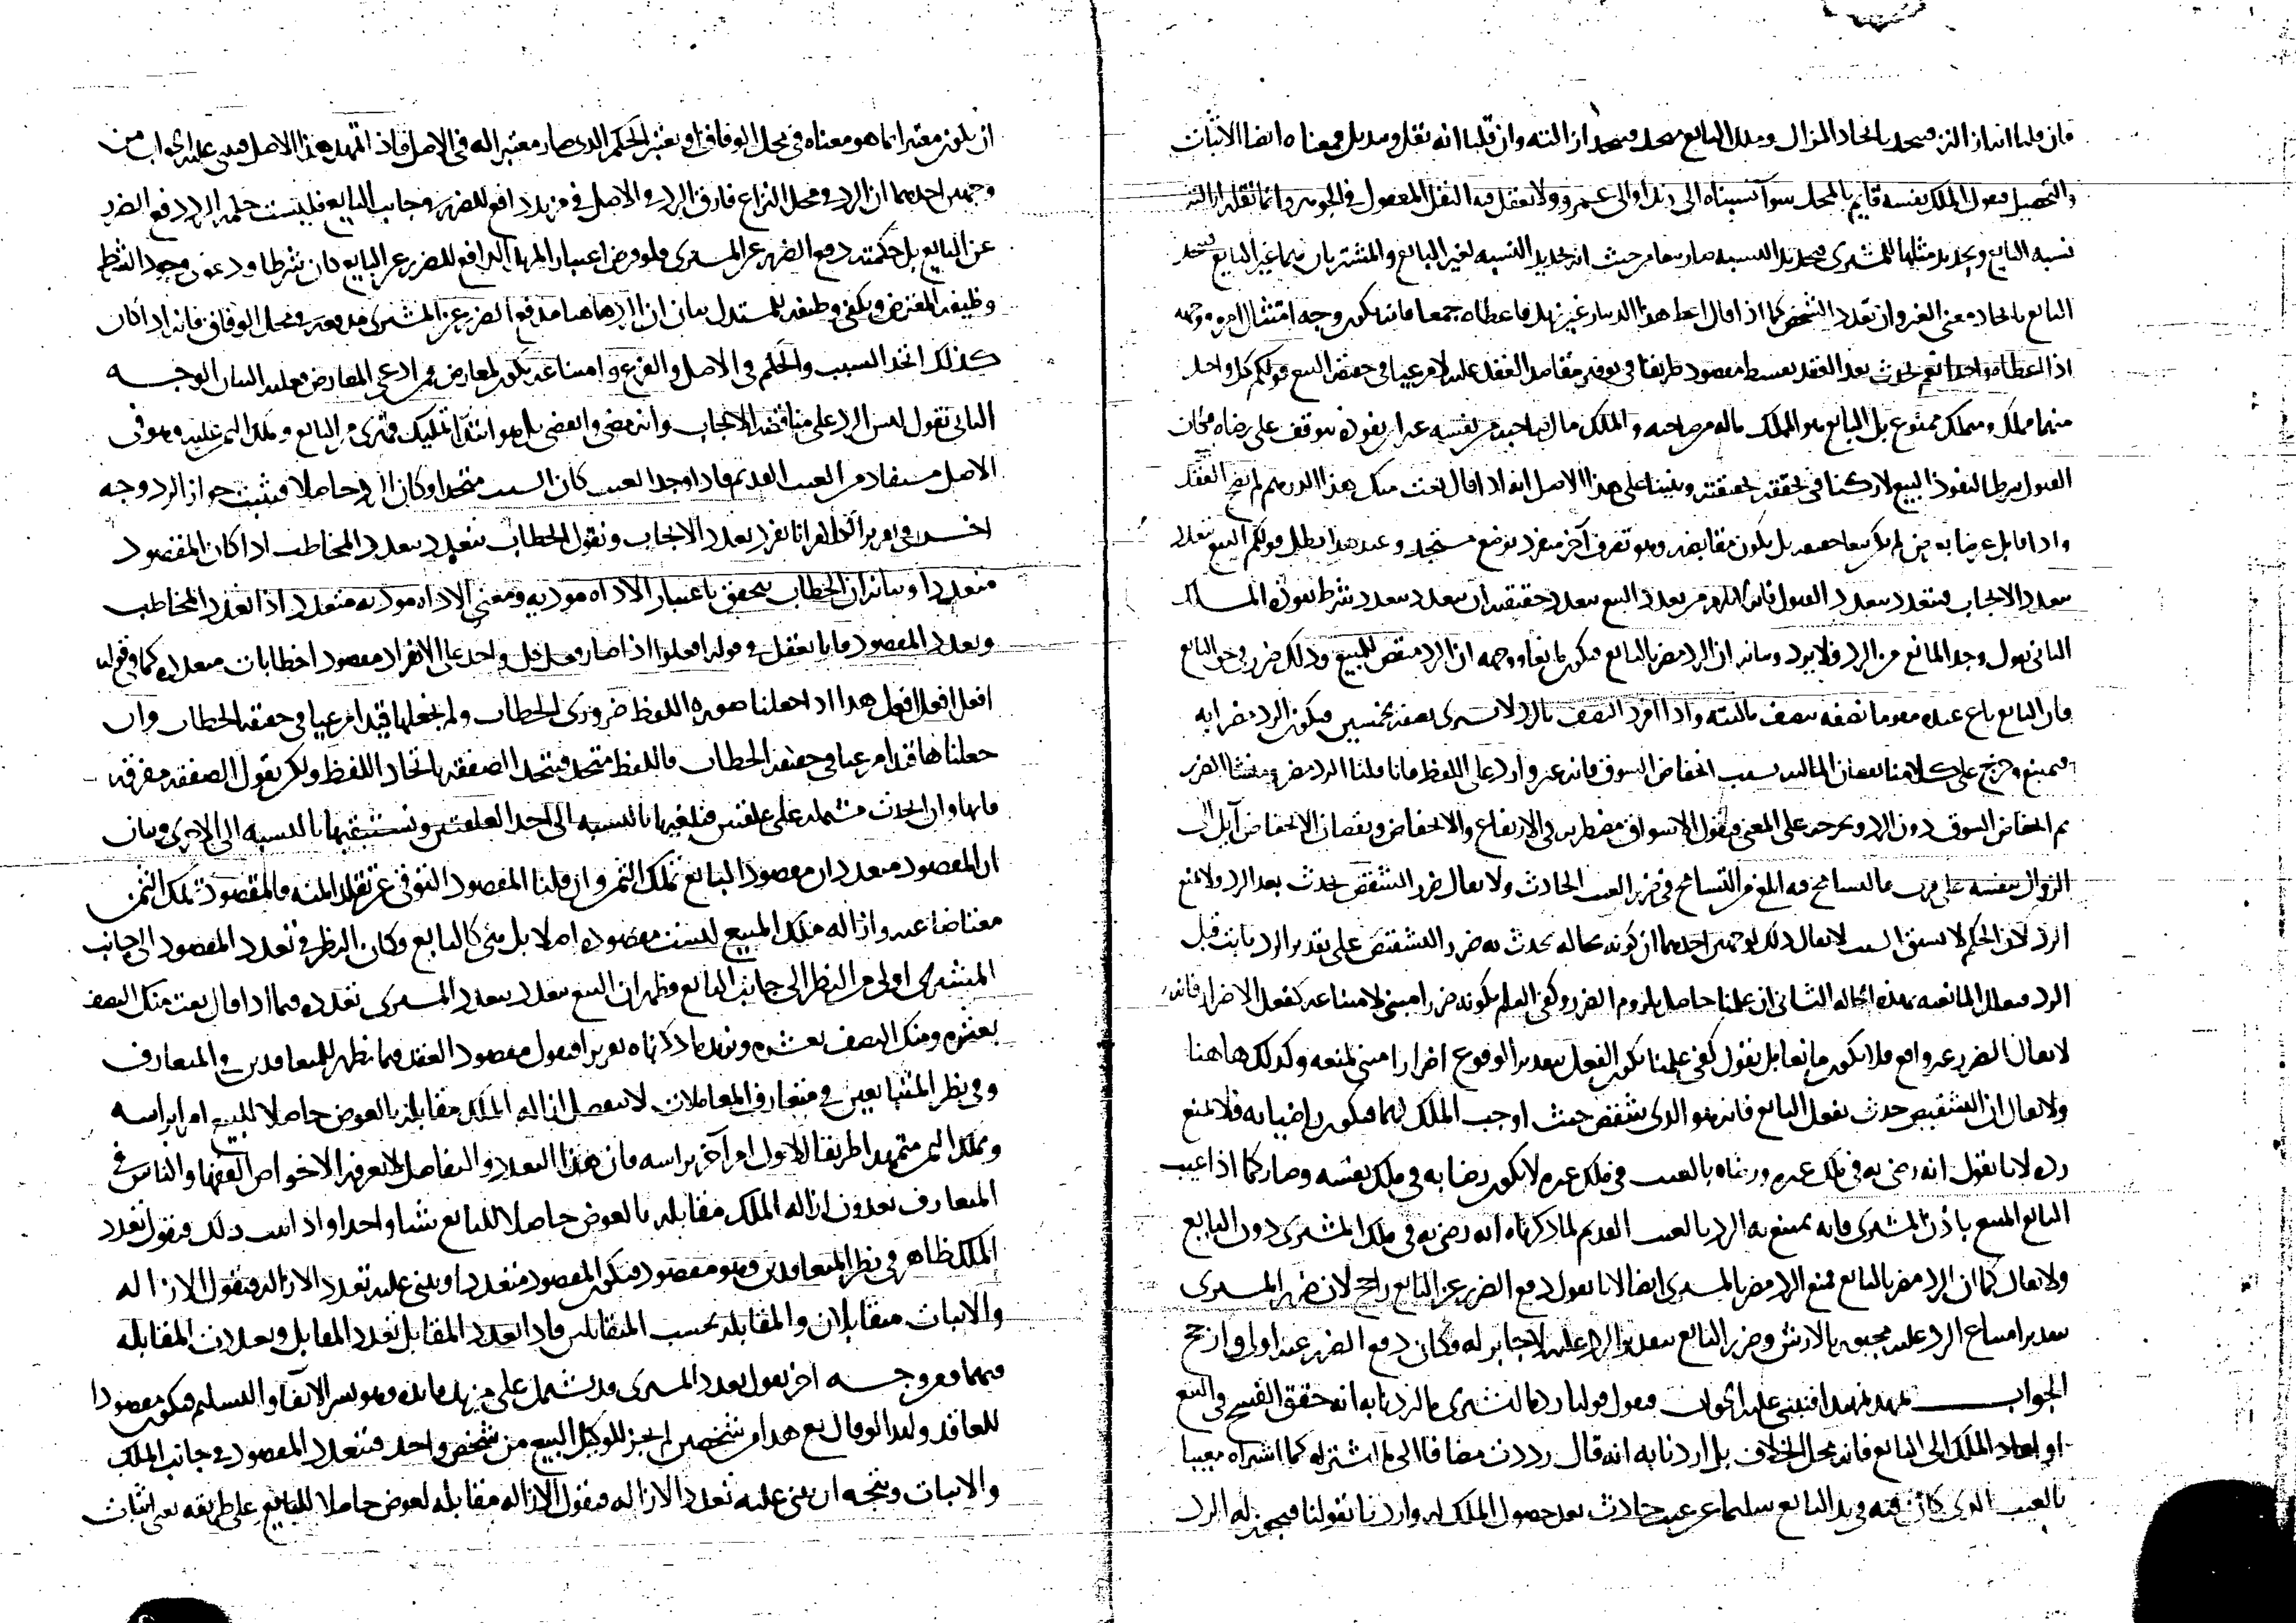 فان قلنا انه ازاله فيتحد باتحاد المزال وملك البايع متحد فيتحد ازالته وان قلنا انه نقل وتبديل فمعناه ايضا الاثبات
والتحصيل فنقول الملك نفسه قايم بالمحل سوآ نسبناه الى زيد او الى عمرو ولا نعقل فيه النقل المعقول في الجوهر وانما نقله ازالة
نسبه البايع وتجديد مثلها للمشترى فتجديد النسبه صار بيعا من حيث انه تجديد النسبه لغير البايع والمشتريان هما غير البايع فيتحد
البايع باتحاد معنى الغير وان تعدد الشخص كما اذا قال اعط هذا الدينار غير زيد فاعطاه جمعا فانه يكون وجه امتثال امره وجه
اذا اعطاه واحدا نعم يحدث بعد العقد تقسيط مقصود طريقا في توفير مقاصد العقد عليه لا مرعيا في حقيقة البيع قولكم كل واحد
منهما مملك ومتملك ممنوع بل البايع هو المملك ماله من صاحبه والملك مال صاحبه من نفسه غير ان نفوذه يتوقف على رضاه فكان
القبول شرطا لنفوذ البيع لا ركنا في تحققه حقيقته وبنينا على هذا الاصل انه اذا قال بعت منك هذا الدرهم لم يصح العقد
واذا قابل عرضا به حين لم يكن بيعا حقيقه بل يكون مقايضه وهو تصرف آخر منفرد بوضع مستجد وعند هذا يبطل قولكم البيع يتعدد
بتعدد الايجاب فيتعدد بتعدد القبول فانه لا يلزم من تعدد البيع بتعدد حقيقته ان يتعدد بتعدد شرط نفوذه المسلك
الثانى نقول وجد المانع من الرد فلا يرد وبيانه ان الرد مضر بالبايع فيكون مانعا ووجهه ان الرد منقص للمبيع وذلك ضرر في حق البايع
فان البايع باع عبده مقوما نصفه بنصف بالبته واذا افرد النصف بالرد لا يشترى نصفه بخمسين فيكون الرد مضرا به
فيمتنع وخرج على كلامنا نقصان الماليه بسبب انخفاض السوق فانه غير وارد على اللفظ فانا قلنا الرد مضر ومنشأ الضرر
ثم انخفاض السوق دون الرد ونخرجه على المعنى فنقول الاسواق مضطربه في الارتفاع والانخفاض ونقصان الانخفاض آيل الى
الزوال بنفسه على قرب فالتسامح فيه ابلغ من التسامح في ضرر العيب الحادث ولا يقال ضرر التشقيص يحدث بعد الرد ولا يمنع
الرد لان الحكم لا يسبق السبب لا يقال ذلك لوجهين احدهما ان كونه بحاله يحدث به ضرر التشقيص على تقدير الرد ثابت قبل
الرد فيعلل المانعيه بهذه الحاله الثانى ان علمنا حاصل بلزوم الضرر وكفى العلم بكونه ضررا مبنى لامتناعه كفعل الاضرار فانه
لا يقال الضرر غير واقع فلا يكون مانعا بل نقول كفى علمنا بكون الفعل بتقدير الوقوع اضرارا مبنى لمنعه وكذلك هاهنا
ولا يقال ان التشقيص حدث بفعل البايع فانه هو الذى شقص حيث اوجب الملك لهما فيكون راضيا به فلا يمنع
رده لانا نقول انه رضى به في ملك غيره ورضاه بالعيب في ملك غيره لا يكون رضا به في ملك نفسه وصار كما اذا عيب
البايع المبيع باذن المشترى فانه يمتنع به الرد بالعيب القديم لما ذكرناه انه رضى به في ملك المشترى دون البايع
ولا يقال كما ان الرد مضر بالبايع فمنع الرد مضر بالمشترى ايضا لانا نقول دفع الضرر عن البايع راجح لان ضرر المشترى
بتقدير امتناع الرد عليه مجبور بالارش وضرر البايع بتقدير الرد عليه لا جابر له فكان دفع الضرر عنه اولى وارجح
الجواب نمهد تمهيدا فنبنى عليه الجواب فنقول قولنا رد ما اشترى ما اردنا به انه حقق الفسخ في البيع
او اعاد الملك الى البايع فانه محل الخلاف بل اردنا به انه قال رددت مضافا الى ما اشتراه كما اشتراه معيبا
بالعيب الذى كان فيه في يد البايع سليما عن عيب حادث بعد حصول الملك له واردنا بقولنا فيجوز له الرد
ان يكون معتبرا بما هو معناه في محل الوفاق او نعتبر الحكم الذى صار معتبرا له في الاصل فاذا تمهد هذا الاصل فنبنى عليه الجواب من
وجهين احدهما ان الرد في محل النزاع فارق الرد في الاصل في مزيد دافع للضرر في جانب البايع فليست حكمة الرد دفع الضرر
عن البايع بل حكمته دفع الضرر عن المشترى فلو فرض اعتبار المزيد الدافع للضرر عن البايع كان شرطا ودعوى وجود الشرط
وظيفة المعترض ويكفى وظيفه للمستدل بيان ان الرد هاهنا يدفع الضرر عن المشترى دفعه في محل الوفاق فانه اذا كان
كذلك اتحد السبب والحكم في الاصل والفرع وامتناعه يكون لمعارض فمن ادعى المعارض فعليه البيان الوجه
الثانى نقول ليس الرد على مناقضه الايجاب وانه مضى وانقضى بل هو ابتدآ تمليك فيترك من البايع وملك الثمن عليه وهو في
الاصل مستفاد من العيب القديم فاذا وجد العيب كان السبب متحدا وكان الرد حاصلا فيثبت جواز الرد وجه
اخر في تقرير النظر انا نفرد تعدد الايجاب ونقول الخطاب يتعدد بتعدد المخاطب اذا كان المقصود
متعددا وبيانه ان الخطاب يتحقق باعتبار الاداه مودبه ومعنى الاداه مودبه متعدد اذا تعدد المخاطب
وتعدد المقصود فانا نعقل في قوله افعلوا اذا صار فعل كل واحد على الانفراد مقصودا خطابات متعدده كما في قوله
افعل افعل افعل هذا اذا جعلنا صورة اللفظ ضرورى الخطاب ولم نجعلها قيدا مرعيا في حقيقة الخطاب وان
جعلناها قيدا مرعيا في حقيقة الخطاب فاللفظ متحد فيتحد الصفقه باتحاد اللفظ ولكن نقول الصفقه مفرقه
فانها وان اتحدت مشتمله على علقتين فنلغيها بالنسبه الى احد العلقتين ونستبقيها بالنسبه الى الاخرى وبيان
ان المقصود متعدد ان مقصود البايع تملك الثمن وان قلنا المقصود التوقى عن تقلد المنه فالمقصود تملك الثمن
معتاضا عنه وازاله ملك المبيع ليست مقصوده اصلا بل هى كالتابع وكان النظر في تعدد المقصود الى جانب
المشترى اولى من النظر الى جانب البايع وظهر ان البيع يتعدد بتعدد المشترى تعدده فيما اذا قال بعت منك النصف
بعشره ومنك النصف بعشره ونزيد ما ذكرناه تقريرا فنقول مقصود العقد فيما يظهر للمتعاقدين في المتعارف
وفي نظر المتبايعين في متعارف المعاملات لا ينفصل ازاله الملك مقابله بالعوض حاصلا للمبيع امرا براسه
وتملك الثمن متمهدا طريقا للاول امرا آخر براسه فان هذا التعدد والتفاصل لا يعرفه الا خواص الفقها والناس في
المتعارف يعدون ازاله الملك مقابله بالعوض حاصلا للبايع شيا واحدا واذا ثبت ذلك فنقول تعدد
الملك ظاهر في نظر المتعاقدين وهو مقصود فيكون المقصود متعددا وينبنى عليه تعدد الازاله فنقول الازاله
والاثبات متقابلان والمقابله بحسب المتقابلين فاذا تعدد المقابل تعدد المقابل وتعددت المقابله
فيهما وجه اخر نقول تعدد المشترى قد يشتمل على مزيد فايده وهو يسر الايفآ والتسليم فيكون مقصودا
للعاقد ولهذا لو قال بع هذا من شخصين لم يجز للوكيل البيع من شخص واحد فيتعدد المقصود في جانب الملك
والاثبات ويتجه ان ينبنى عليه تعدد الازاله فنقول الازاله مقابله لعوض حاصلا للبايع على طريقه يعنى اثبات